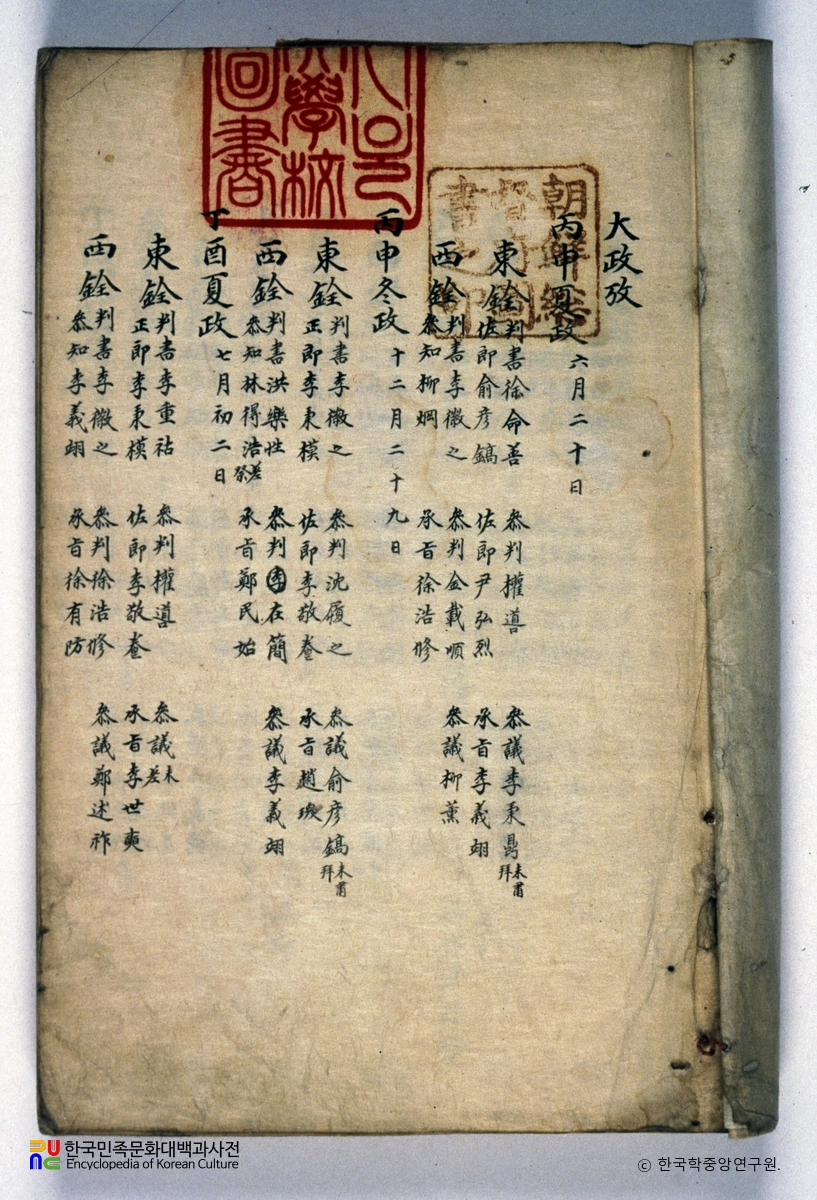 大政攷
丙申夏政 六月二十日
東銓 判書徐命善 參判權噵 參議李秉鼎 未肅拜
佐郎俞彦鎬 佐郎尹弘烈 承旨李義翊
西銓 判書李徽之 參判金載順 參議柳薰
參知柳烱 承旨徐浩修
丙申冬政 十二月二十九日
東銓 判書李徽之 參判沈履之 參議俞彦鎬 未肅拜
正郎李東模 佐郎李敬養 承旨趙
西銓 判書洪樂性 參判李在簡 參議李義翊
參知林得浩 差祭 承旨鄭民始
丁酉夏政 七月初二日
東銓 判書李重祜 參判權噵 參議 未差
正郎李東模 佐郎李敬養 承旨李世奭
西銓 判書李徽之 參判徐浩修 參議鄭述祚
參知李義翊 承旨徐有防
朝鮮總
督府圖
書之印
大學校
圖書
한국민족문화대백과사전
Encyclopedia of Korean Culture
© 한국학중앙연구원.